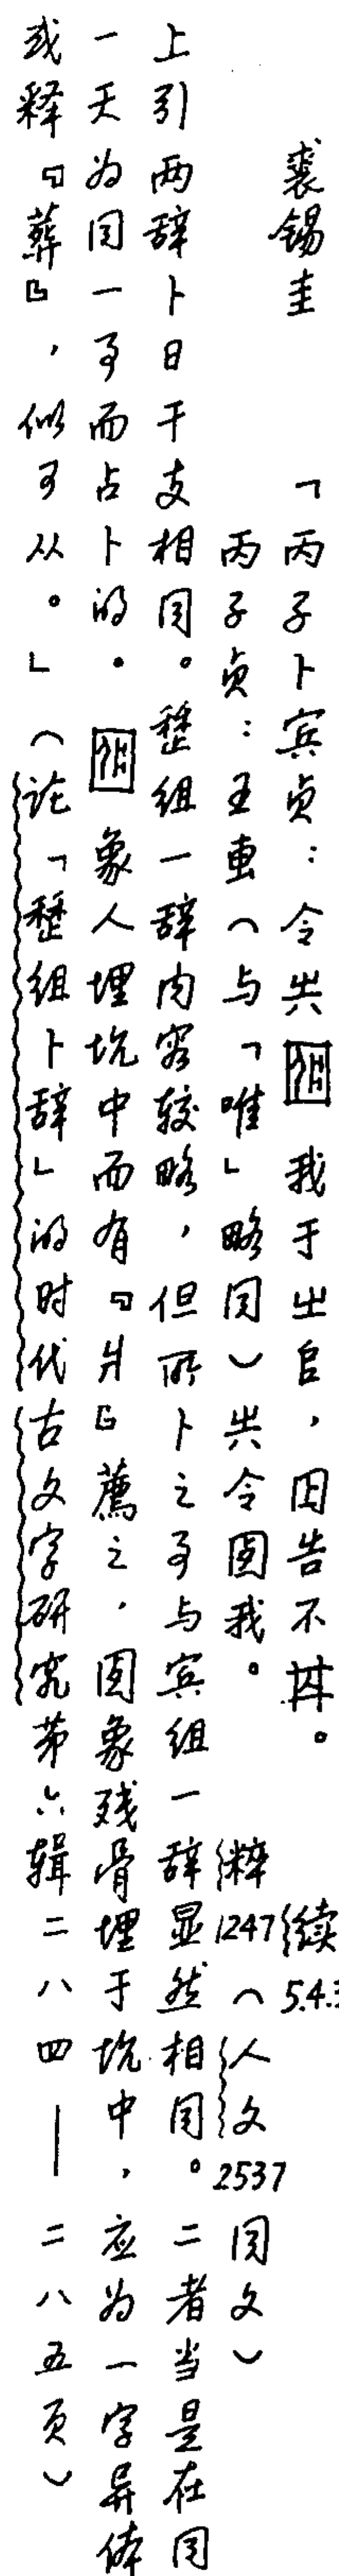 裘锡圭　「丙子卜宾贞：令𠬞我于㞢𠂤，囚告不𡆥。　续5.4.3
丙子贞：王叀（与「唯」略同）令囚我。　粹1247（人文2537同文）
上引两辞卜日干支相同。𠂤组一辞内容较略，但所卜之事与宾组一辞显然相同。二者当是在同
一天为同一事而占卜的。象人埋坑中而有『爿』薦之，象残骨埋于坑中，应为一字异体
或释『葬』，似可从。」（论「组卜辞」的时代古文字研究第六辑二八四—二八五页）